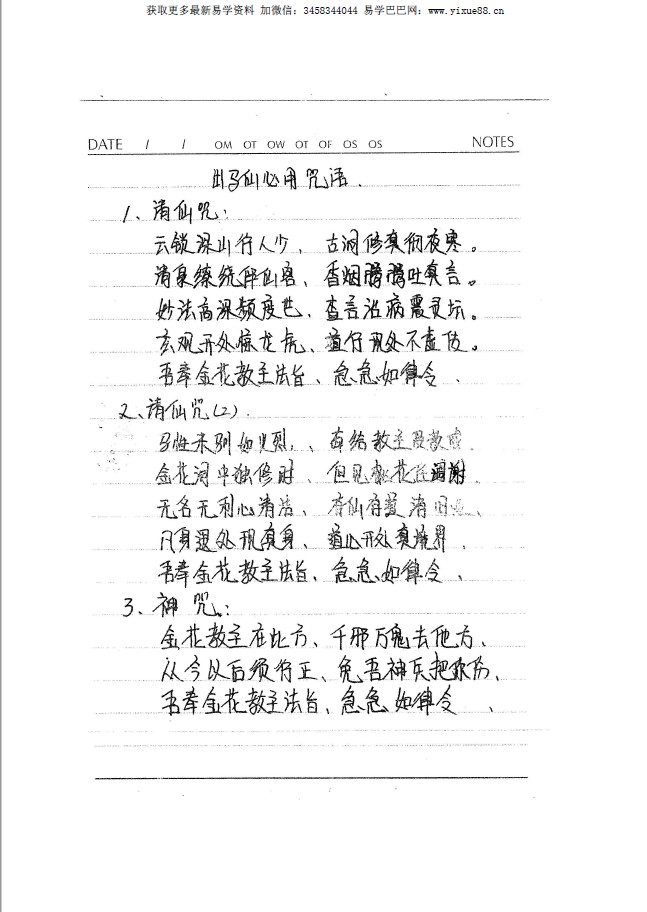 获取更多最新易学资料 加微信：3458344044 易学巴巴网：www.yixue88.cn
DATE / / OM OT OW OT OF OS OS NOTES
出马仙必用咒语.
1、清仙咒：
云锁深山行人少，古洞修真彻夜寒。
清泉缭绕伴仙客、香烟腾腾吐真言。
妙法高深频度世、查言治病震灵坛。
玄观开处惊龙虎、道行现处不虚传。
吾奉金花教主法旨、急急如律令、
2、请仙咒(2).
马性未别如火烈、、
金花洞中独修时、但见桃花
无名无利心清洁、
凡身退处现真身、道心开处真境界、
吾奉金花教主法旨、急急如律令、
3、神咒：
金花教主在此方、千邪万鬼去他方、
从今以后须行正、免吾神兵把你伤、
吾奉金花教主法旨、急急如律令、